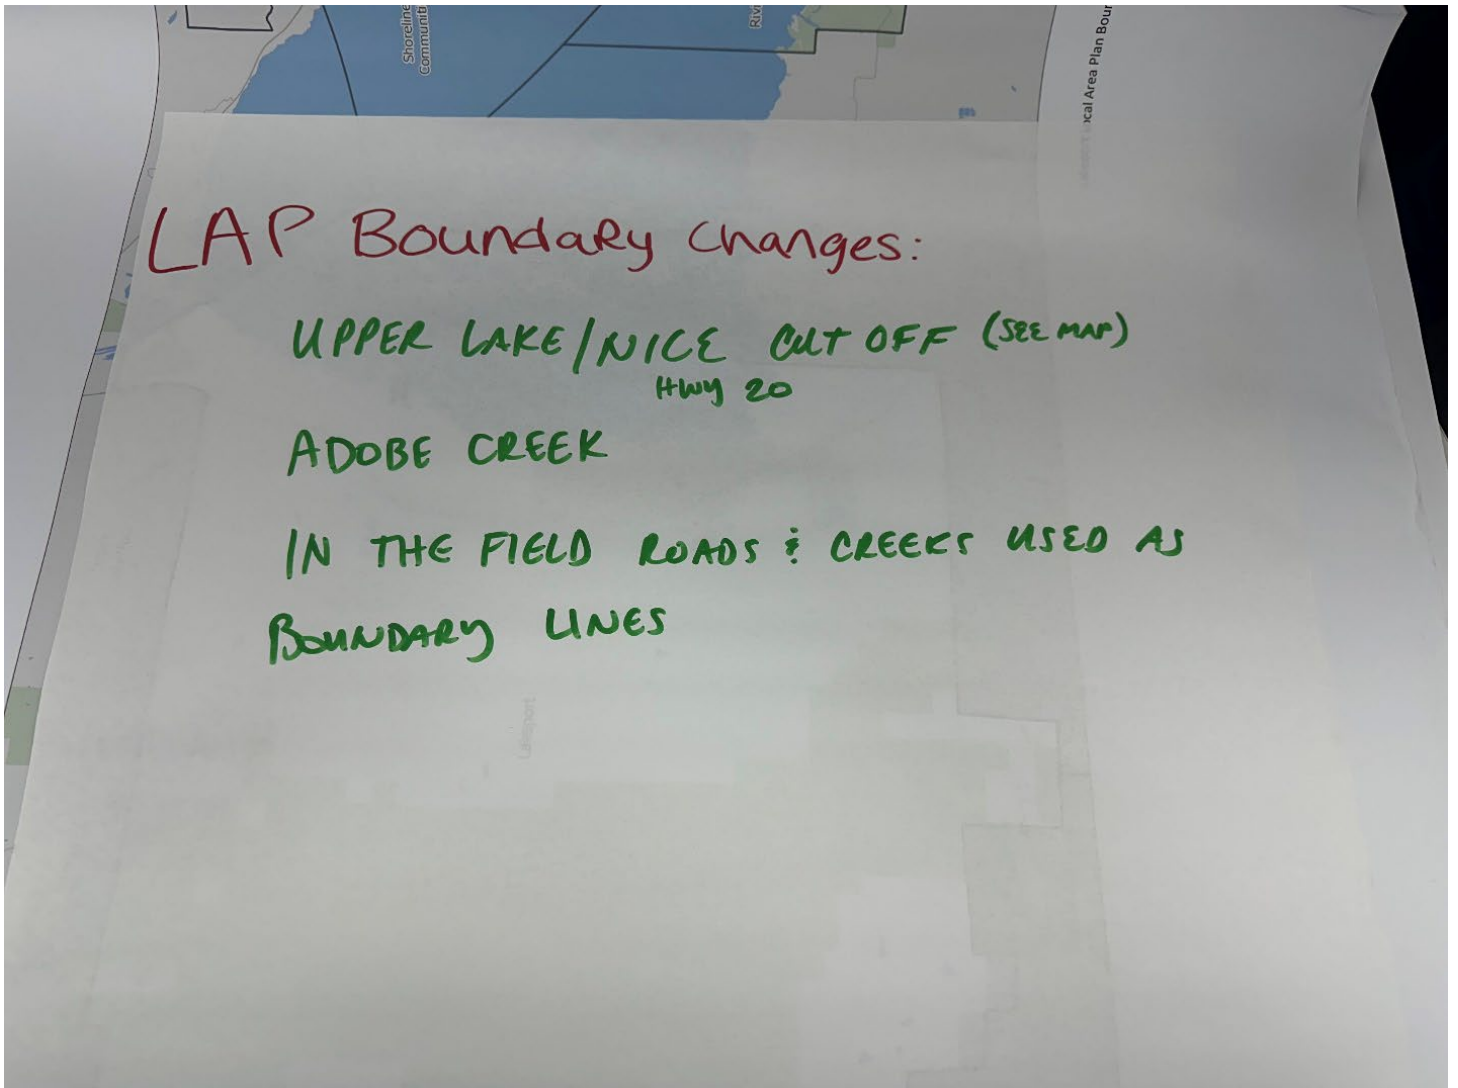 Shoreline
Communiti
Riv
ocal Area Plan Boun
LAP Boundary Changes:
UPPER LAKE/NICE CUT OFF (SEE MAP)
HWY 20
ADOBE CREEK
IN THE FIELD ROADS & CREEKS USED AS
BOUNDARY LINES
Lakeport